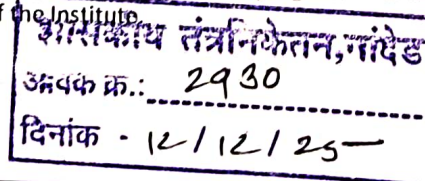 f the Institute
शासकीय तंत्रनिकेतन,नांदेड
आवक क्र.: 2930
दिनांक - 12/12/25